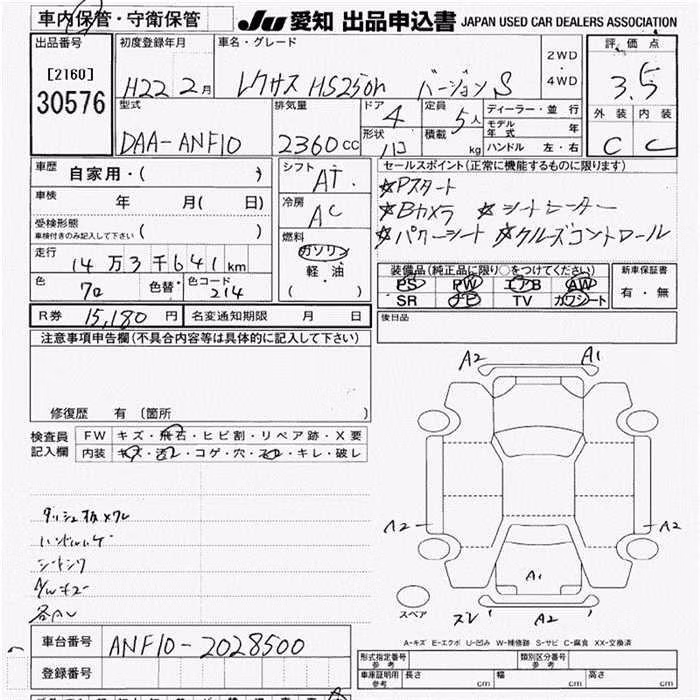 車内保管・守衛保管
JU 愛知 出品申込書 JAPAN USED CAR DEALERS ASSOCIATION
出品番号
[2160]
30576
初度登録年月
H22 2月
車名・グレード
レクサス HS250h バージョン S
2WD
・
4WD
評価点
3.5
外装 内装
C C
型式
DAA-ANF10
排気量
2360cc
ドア
4
形状
定員
5人
積載
kg
ディーラー・並行
モデル年式 年
ハンドル 左・右
車歴 自家用・( )
車検 年 月( 日)
受検形態
車検付きのみ記入して下さい ( )
走行 14万3千641km
色 クロ 色替 色コード 214
シフト
AT
冷房
AC
燃料
ガソリン
・
軽油
・
( )
セールスポイント(正常に機能するものに限ります)
☆Pスタート
☆Bカメラ ☆シートヒーター
☆パワーシート ☆クルーズコントロール
装備品(純正品に限り○をつけてください)
PS PW エアB AW
SR ナビ TV カワシート
新車保証書
有・無
R券 15,180円 名変通知期限 月 日
後日品
注意事項申告欄(不具合内容等は具体的に記入して下さい)
修復歴 有 〔箇所 〕
検査員記入欄
FW キズ・飛石・ヒビ割・リペア跡・X要
内装 キズ・汚レ・コゲ・穴・スレ・キレ・破レ
ダッシュ板×ワレ
ハンドルハゲ
シートシワ
A2 A1
A2 A2
A1
スペア
ズレ A2
A-キズ E-エクボ U-凹み W-補修跡 S-サビ C-腐食 XX-交換済
車台番号 ANF10-2028500
登録番号
形式指定番号 参考
類別区分番号 参考
車庫証明用 参考 長さ cm 幅 cm 高さ cm